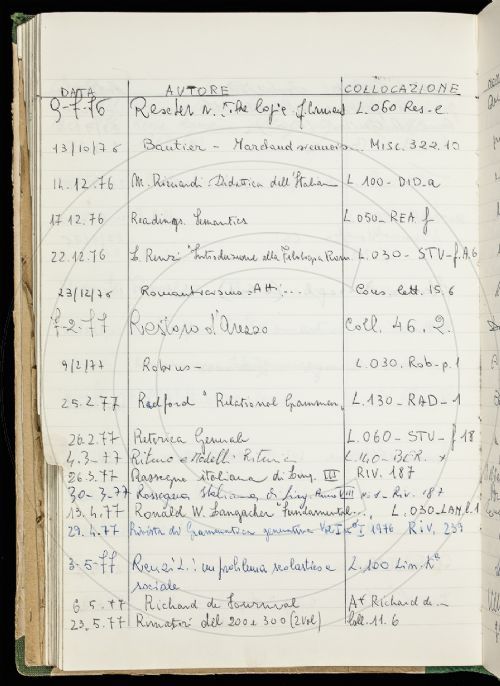 DATA AUTORE COLLOCAZIONE
9-7-76 Rescher N. The logic of L. 060 Res-e
13/10/76 Bautier - Marchands siennois... MISC. 322.10
14.12.76 M. Ricciardi: Didattica dell'italiano L 100-DID-a
17.12.76 Readings. Semantics L 050-REA f
22.12.76 L. Renzi "Introduzione alla Filologia Rom. L. 030-STU-f.A.6
23/12/76 Romanticismo: Atti... Cons. lett. 15.6
7-2-77 Restoro d'Arezzo Coll. 46.2.
9/2/77 Robrus- L.030. Rob-p.1
25.2.77 Radford "Relational Grammar" L.130-RAD-1
26.2.77 Retorica Generale L.060-STU-f 18
4.3-77 Ritmo e Modelli Ritmici L.140-BER.
26.3.77 Rassegna italiana di Ling. III RIV. 187
30-3-77 Rassegna Italiana di Ling. Anno VIII n. 1 - Riv. 187
13.4.77 Ronald W. Langacker "Fundamental... L. 030-LAN.f.1
29.4.77 Rivista di Grammatica generativa Vol I n° 1 1976 RIV. 239
3-5-77 Renzi L.: un problema scolastico e L.100 Lim.
sociale
6.5.77 Richard de Fournival At Richard de...
23.5.77 Rimatori del 200 e 300 (2 Vol) Coll. 11.6